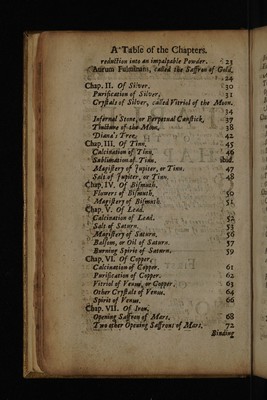 A Table of the Chapters.
reduction into an impalpable Powder. 23
Aurum Fulminans, called the Saffron of Gold,
24
Chap. II. Of Silver. 30
Purification of Silver. 31
Crystals of Silver, called Vitriol of the Moon.
34
Infernal Stone, or Perpetual Caustick. 37
Tincture of the Moon. 38
Diana's Tree. 42
Chap. III. Of Tinn. 45
Calcination of Tinn. 46
Sublimation of Tinn. ibid.
Magistery of Jupiter, or Tinn. 47
Salt of Jupiter, or Tinn. 48
Chap. IV. Of Bismuth.
Flowers of Bismuth. 50
Magistery of Bismuth. 51
Chap. V. Of Lead.
Calcination of Lead. 52
Salt of Saturn. 53
Magistery of Saturn. 56
Balsom, or Oil of Saturn. 57
Burning Spirit of Saturn. 59
Chap. VI. Of Copper.
Calcination of Copper. 61
Purification of Copper. 62
Vitriol of Venus, or Copper. 63
Other Crystals of Venus. 64
Spirit of Venus. 66
Chap. VII. Of Iron.
Opening Saffron of Mars. 68
Two other Opening Saffrons of Mars. 72
Binding